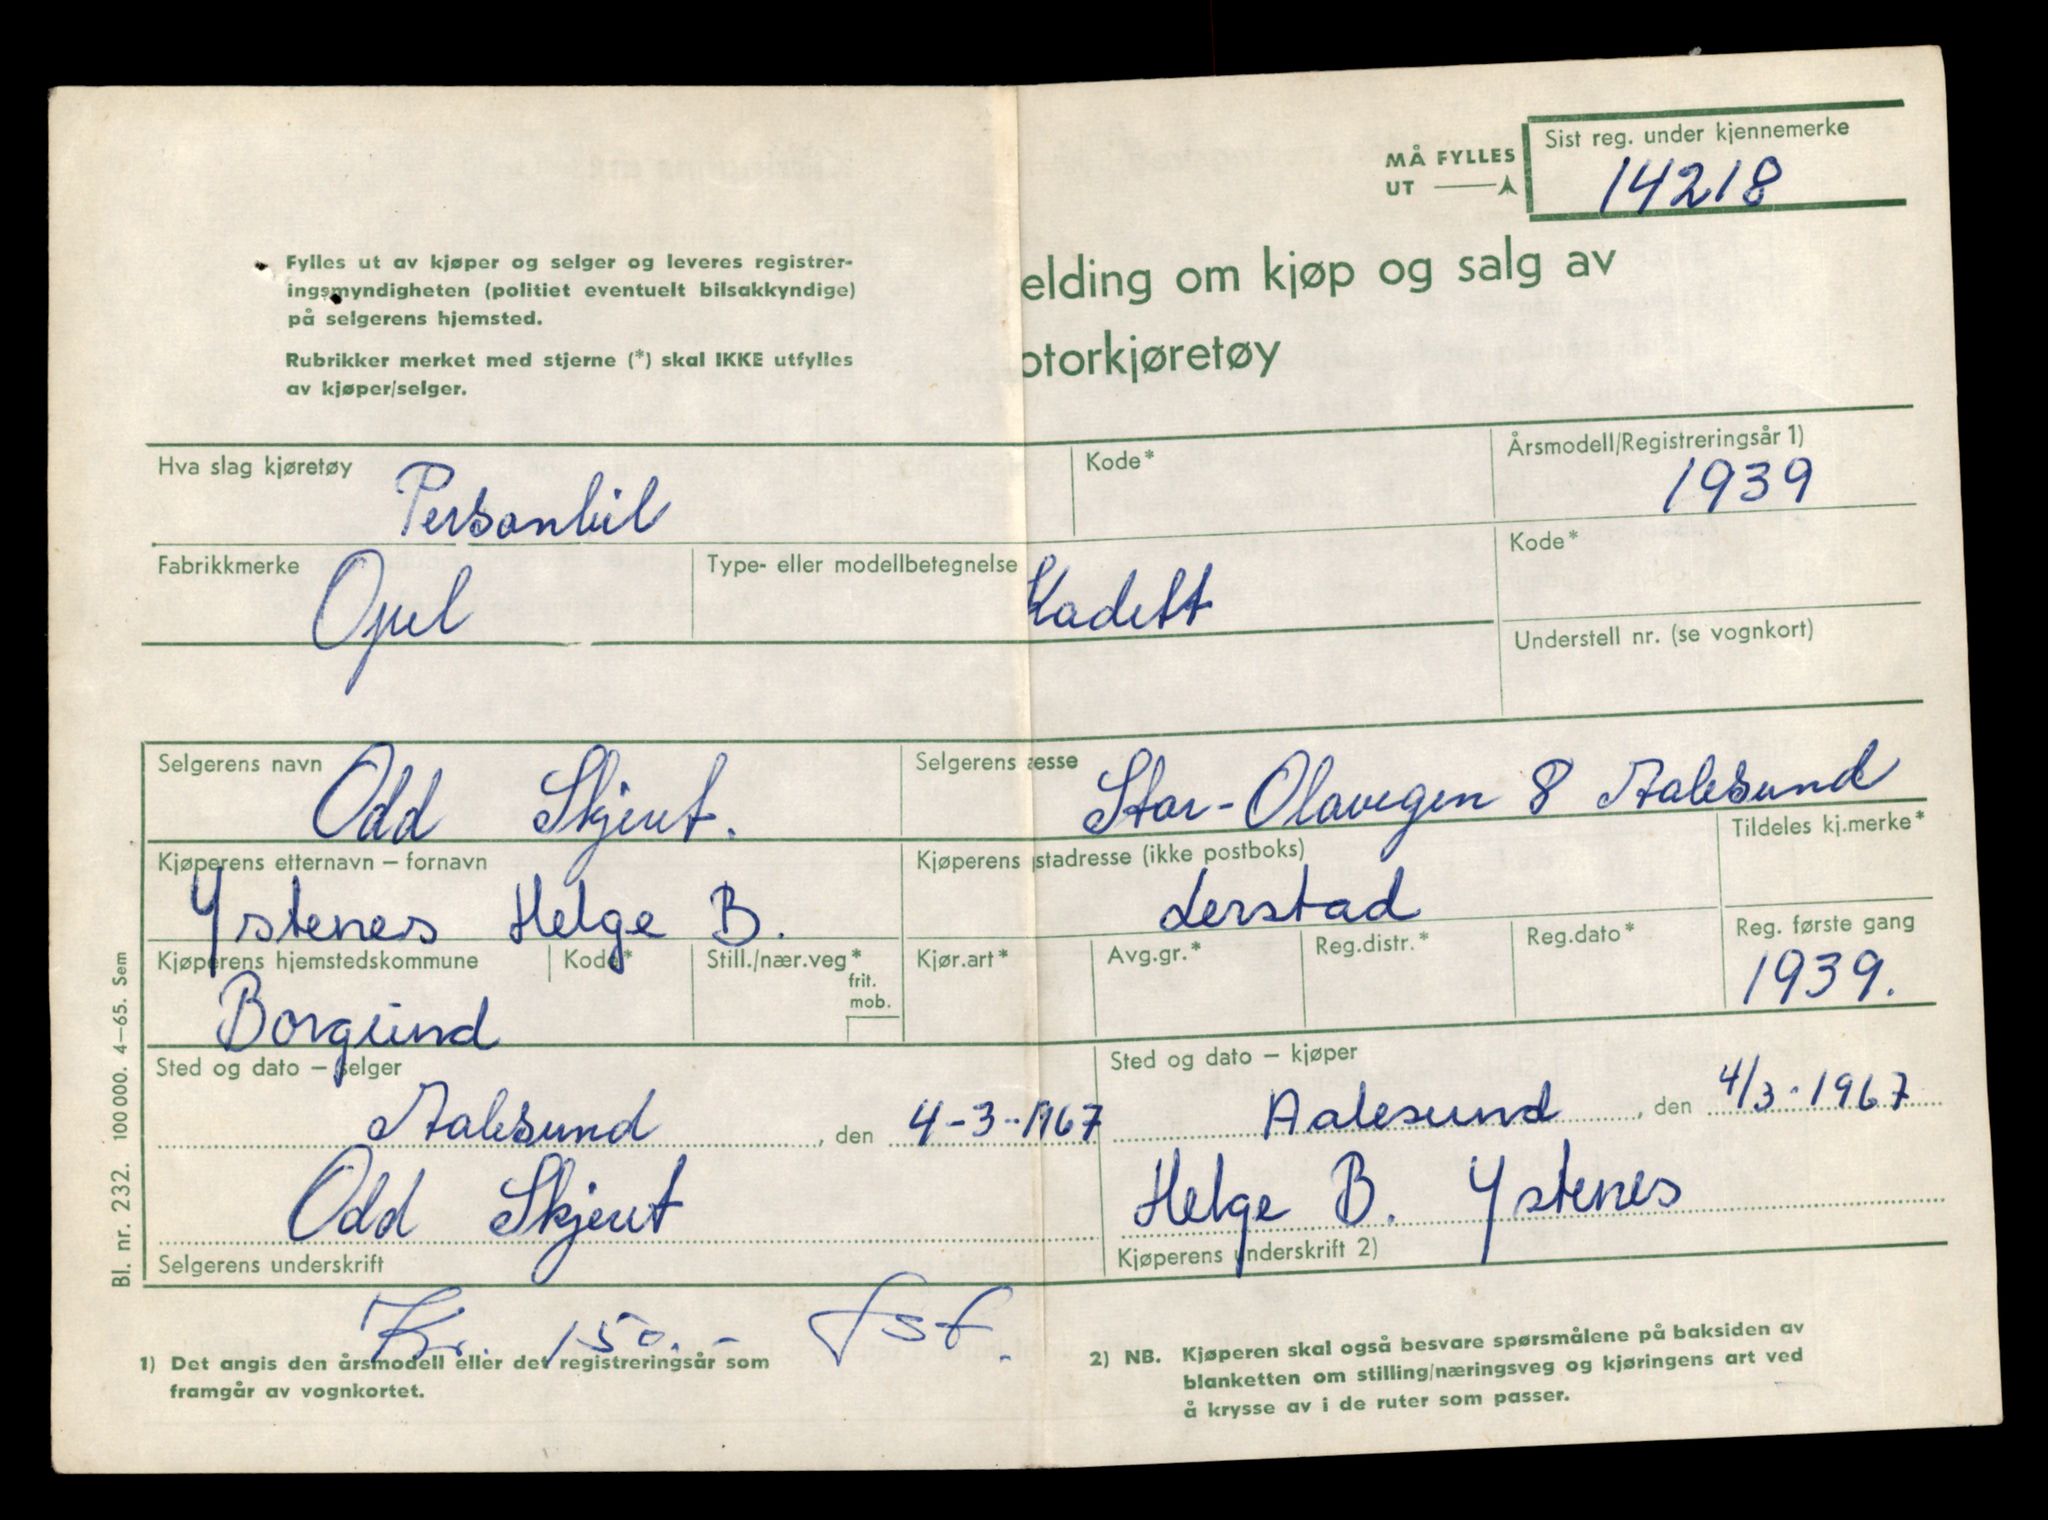 Sist reg. under kjennemerke
MÅ FYLLES
UT
14218
Fylles ut av kjøper og selger og leveres registrer-
ingsmyndigheten (politiet eventuelt bilsakkyndige)
på selgerens hjemsted.
Rubrikker merket med stjerne (*) skal IKKE utfylles
av kjøper/selger.
elding om kjøp og salg av
otorkjøretøy
Hva slag kjøretøy
Personbil
Kode*
Årsmodell/Registreringsår 1)
1939
Fabrikkmerke
Opel
Type- eller modellbetegnelse
Kadett
Kode*
Understell nr. (se vognkort)
Selgerens navn
Odd Skjeut.
Selgerens esse
Stor-Olavegen 8 Aalesund
Kjøperens etternavn – fornavn
Ystenes Helge B.
Kjøperens stadresse (ikke postboks)
Lerstad
Tildeles kj.merke*
Kjøperens hjemstedskommune
Borgund
Kode*
Still./nær.veg*
frit.
mob.
Kjør.art*
Avg.gr.*
Reg.distr.*
Reg.dato*
Reg. første gang
1939.
Sted og dato – selger
Aalesund, den 4-3-1967
Sted og dato – kjøper
Aalesund, den 4/3-1967
Odd Skjeut
Selgerens underskrift
Helge B. Ystenes
Kjøperens underskrift 2)
Kr. 150.-
1) Det angis den årsmodell eller det registreringsår som
framgår av vognkortet.
2) NB. Kjøperen skal også besvare spørsmålene på baksiden av
blanketten om stilling/næringsveg og kjøringens art ved
å krysse av i de ruter som passer.
Bl. nr. 232. 100 000. 4–65. Sem